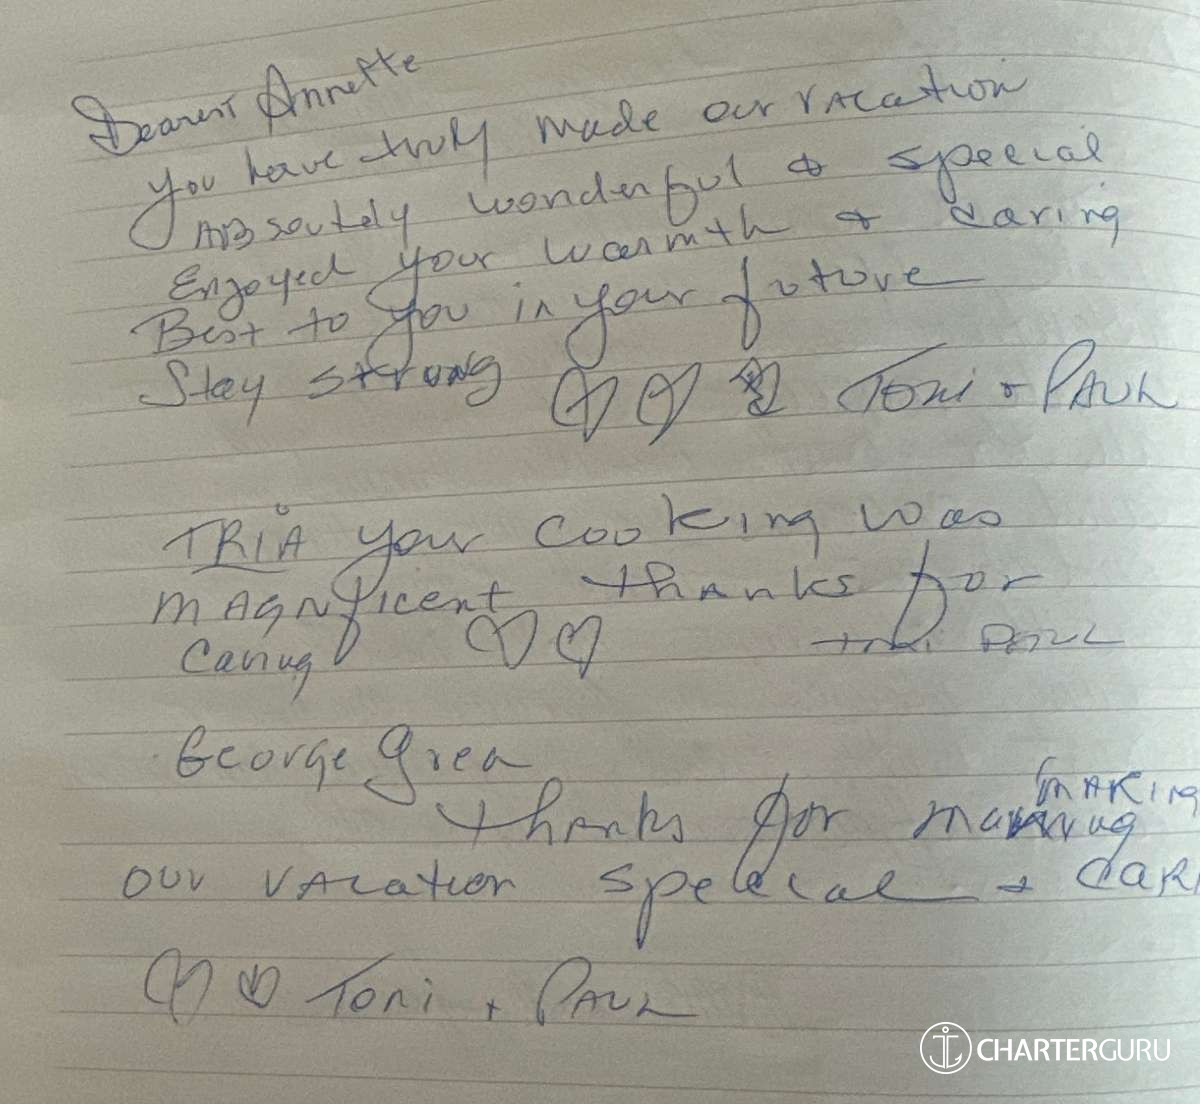 Dearest Annette
you have truly made our vacation
ABsoutely wonderful & special
Enjoyed your warmth + caring
Best to you in your future
Stay strong Toni + PAUL
TRIA your cooking was
mAgnificent thanks for
Caring toni PAUL
George grea
thanks for making
our vacation special + CAR
Toni + PAUL
CHARTERGURU